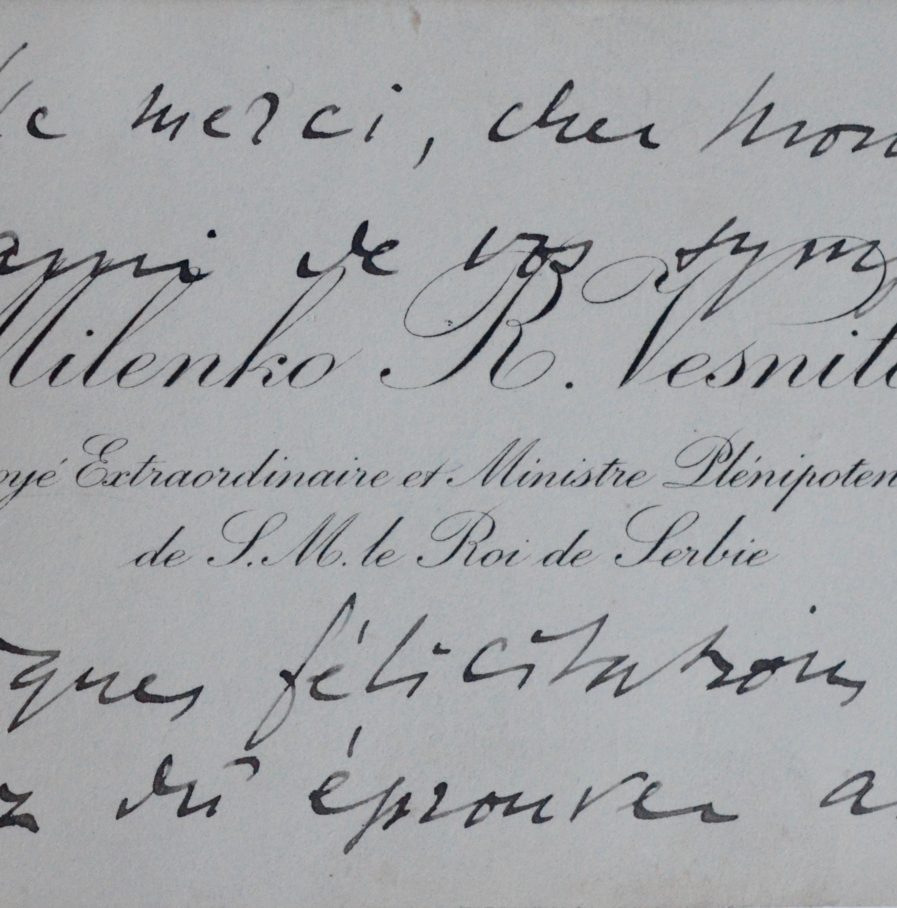 merci, cher Mon
de vos symp
Milenko R. Vesnit
oyé Extraordinaire et Ministre Plénipoten
de S. M. le Roi de Serbie
ques félicitations
z dû éprouver a